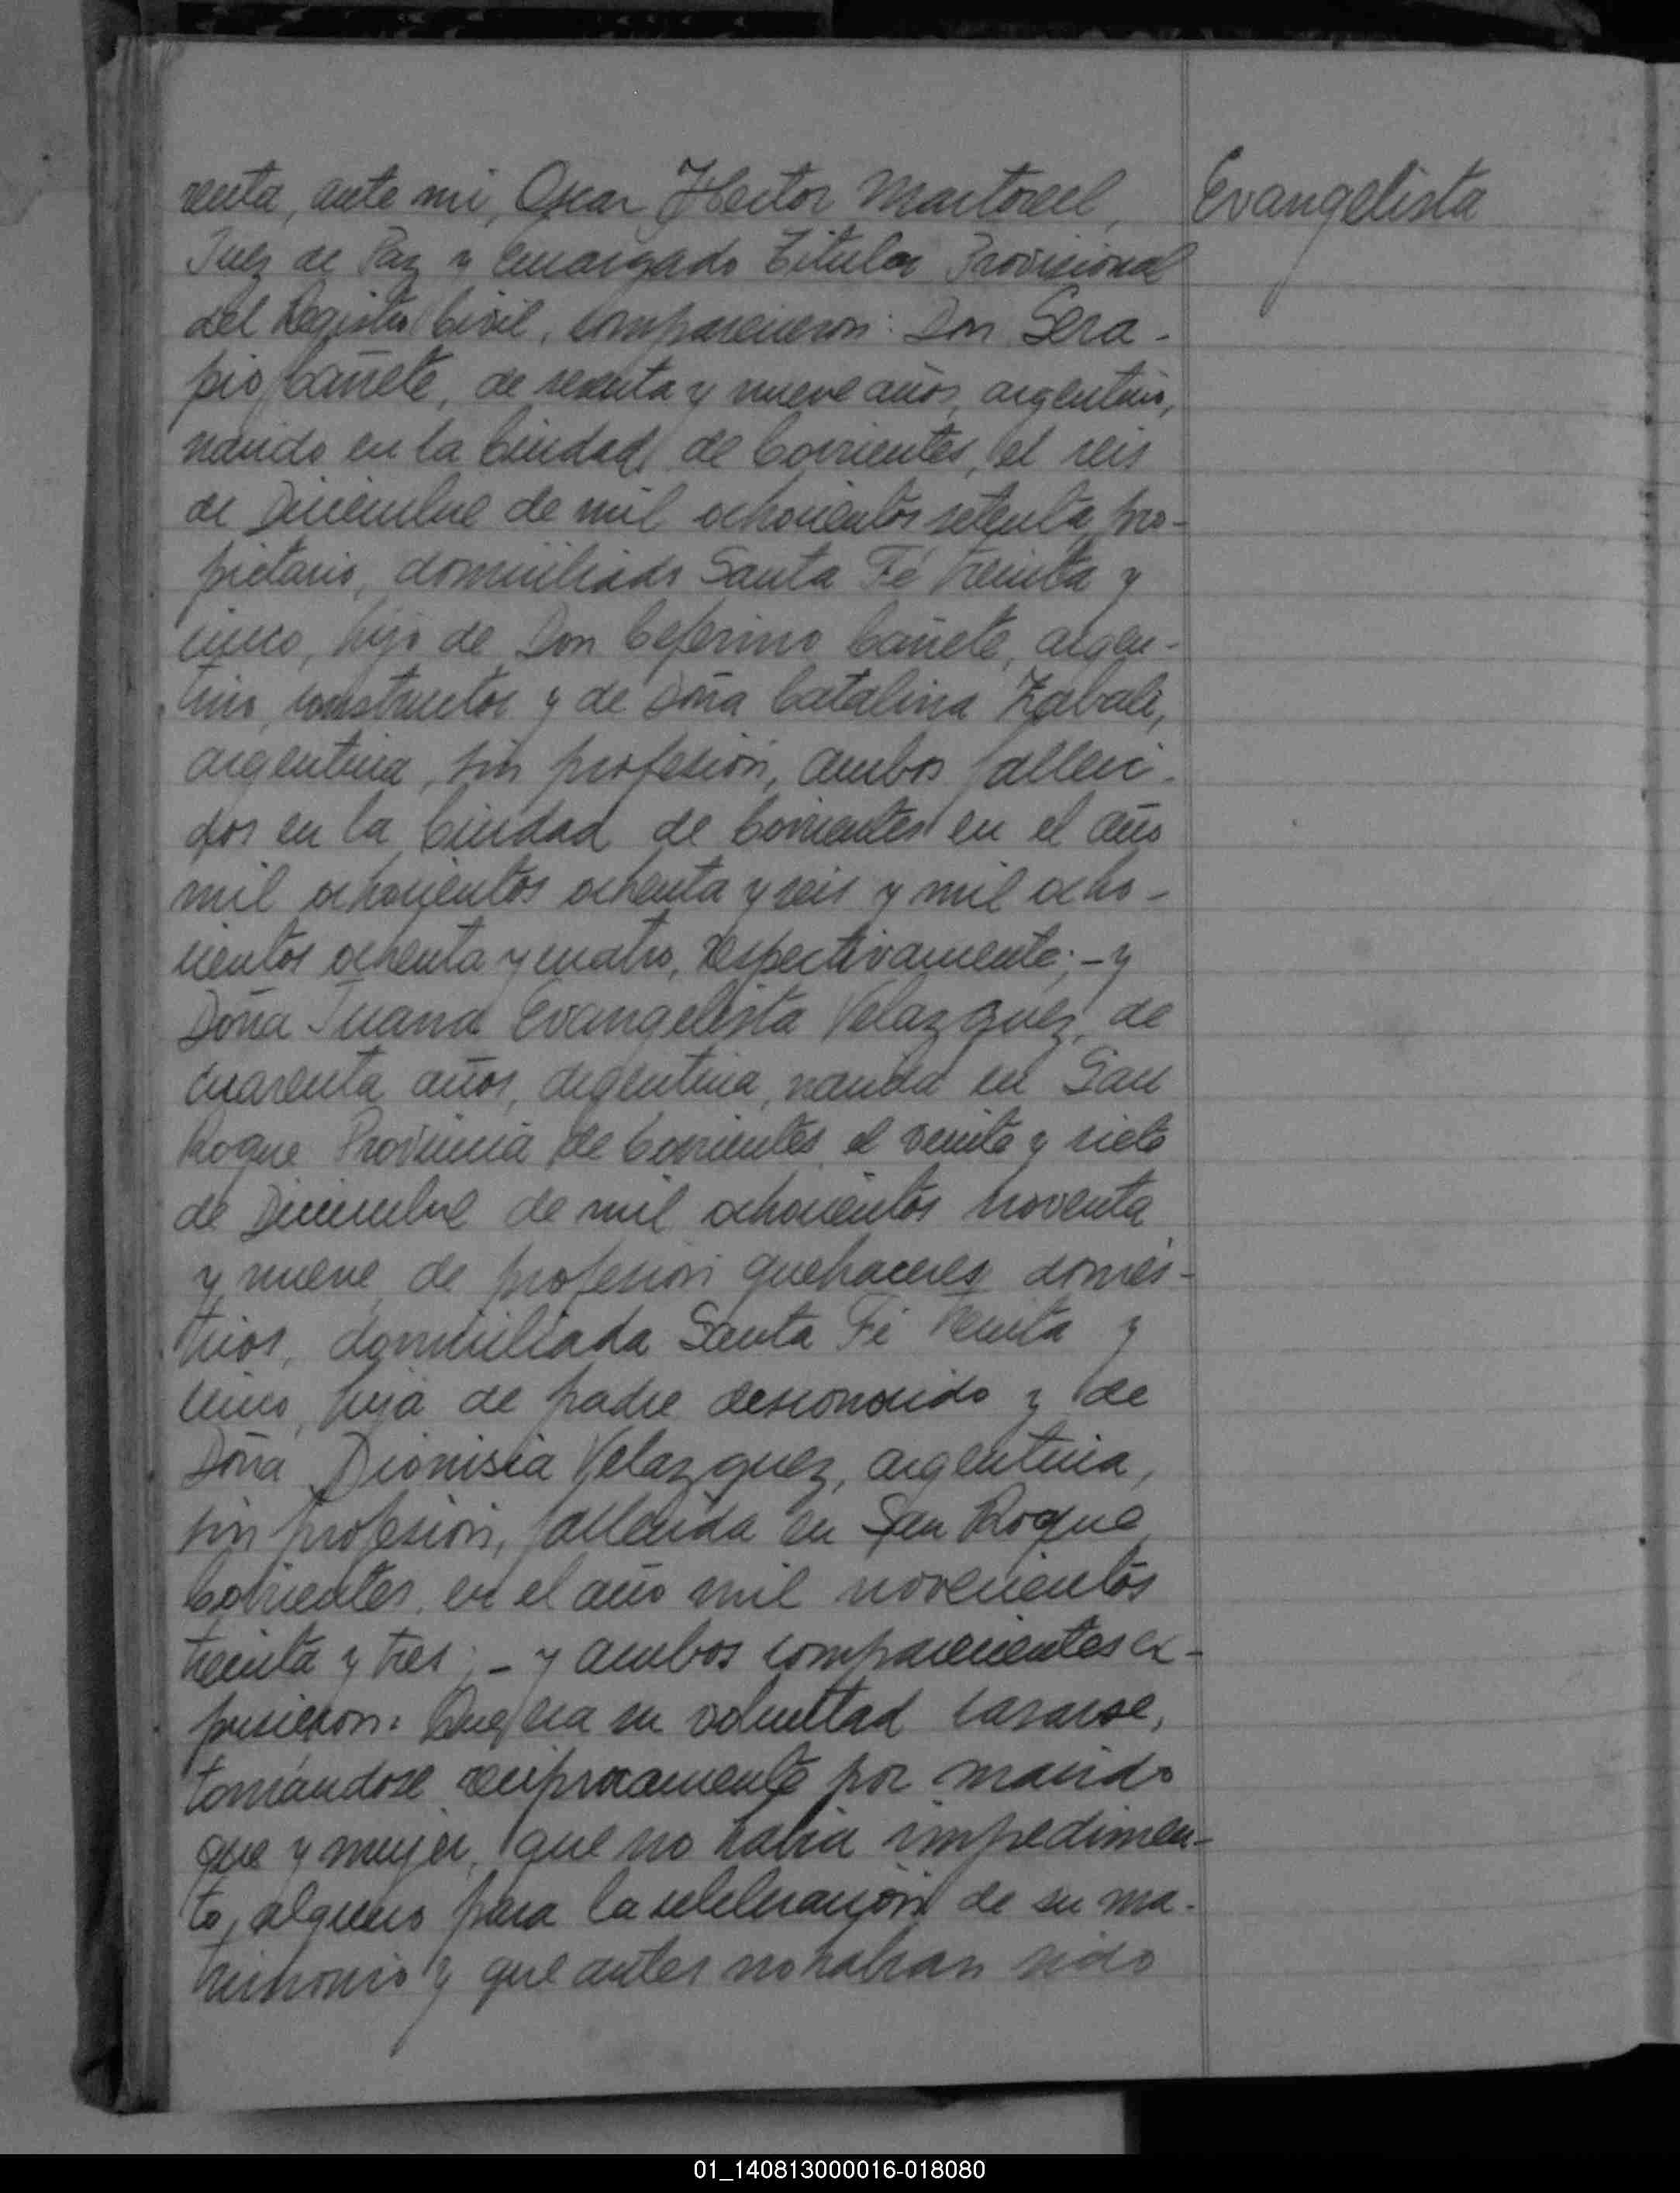 renta, ante mi, Oscar Hector Martorell,
Evangelista
Juez de Paz y Encargado Titular Provisional
del Registro Civil, comparecieron: Don Sera-
pio Cañete, de sesenta y nueve años, argentino,
nacido en la Ciudad de Corrientes, el seis
de Diciembre de mil ochocientos setenta, pro-
pietario, domiciliado Santa Fé treinta y
cinco, hijo de Don Ceferino Cañete, argen-
tino, constructor y de Doña Catalina Zabale,
argentina, sin profesión, ambos falleci-
dos en la Ciudad de Corrientes en el año
mil ochocientos ochenta y seis y mil ocho-
cientos ochenta y cuatro, respectivamente; - y
Doña Juana Evangelista Velazquez, de
cuarenta años, argentina, nacida en San
Roque Provincia de Corrientes, el veinte y siete
de Diciembre de mil ochocientos noventa
y nueve, de profesión quehaceres domés-
ticos, domiciliada Santa Fé treinta y
cinco, hija de padre desconocido y de
Doña Dionisia Velazquez, argentina,
sin profesión, fallecida en San Roque,
Corrientes, en el año mil novecientos
treinta y tres; - y ambos comparecientes ex-
pusieron: Que era su voluntad casarse,
tomándose reciprocamente por marido
que y mujer, que no habia impedimen-
to, alguno para la celebración de su ma-
trimonio y que antes no habian sido
01_140813000016-018080